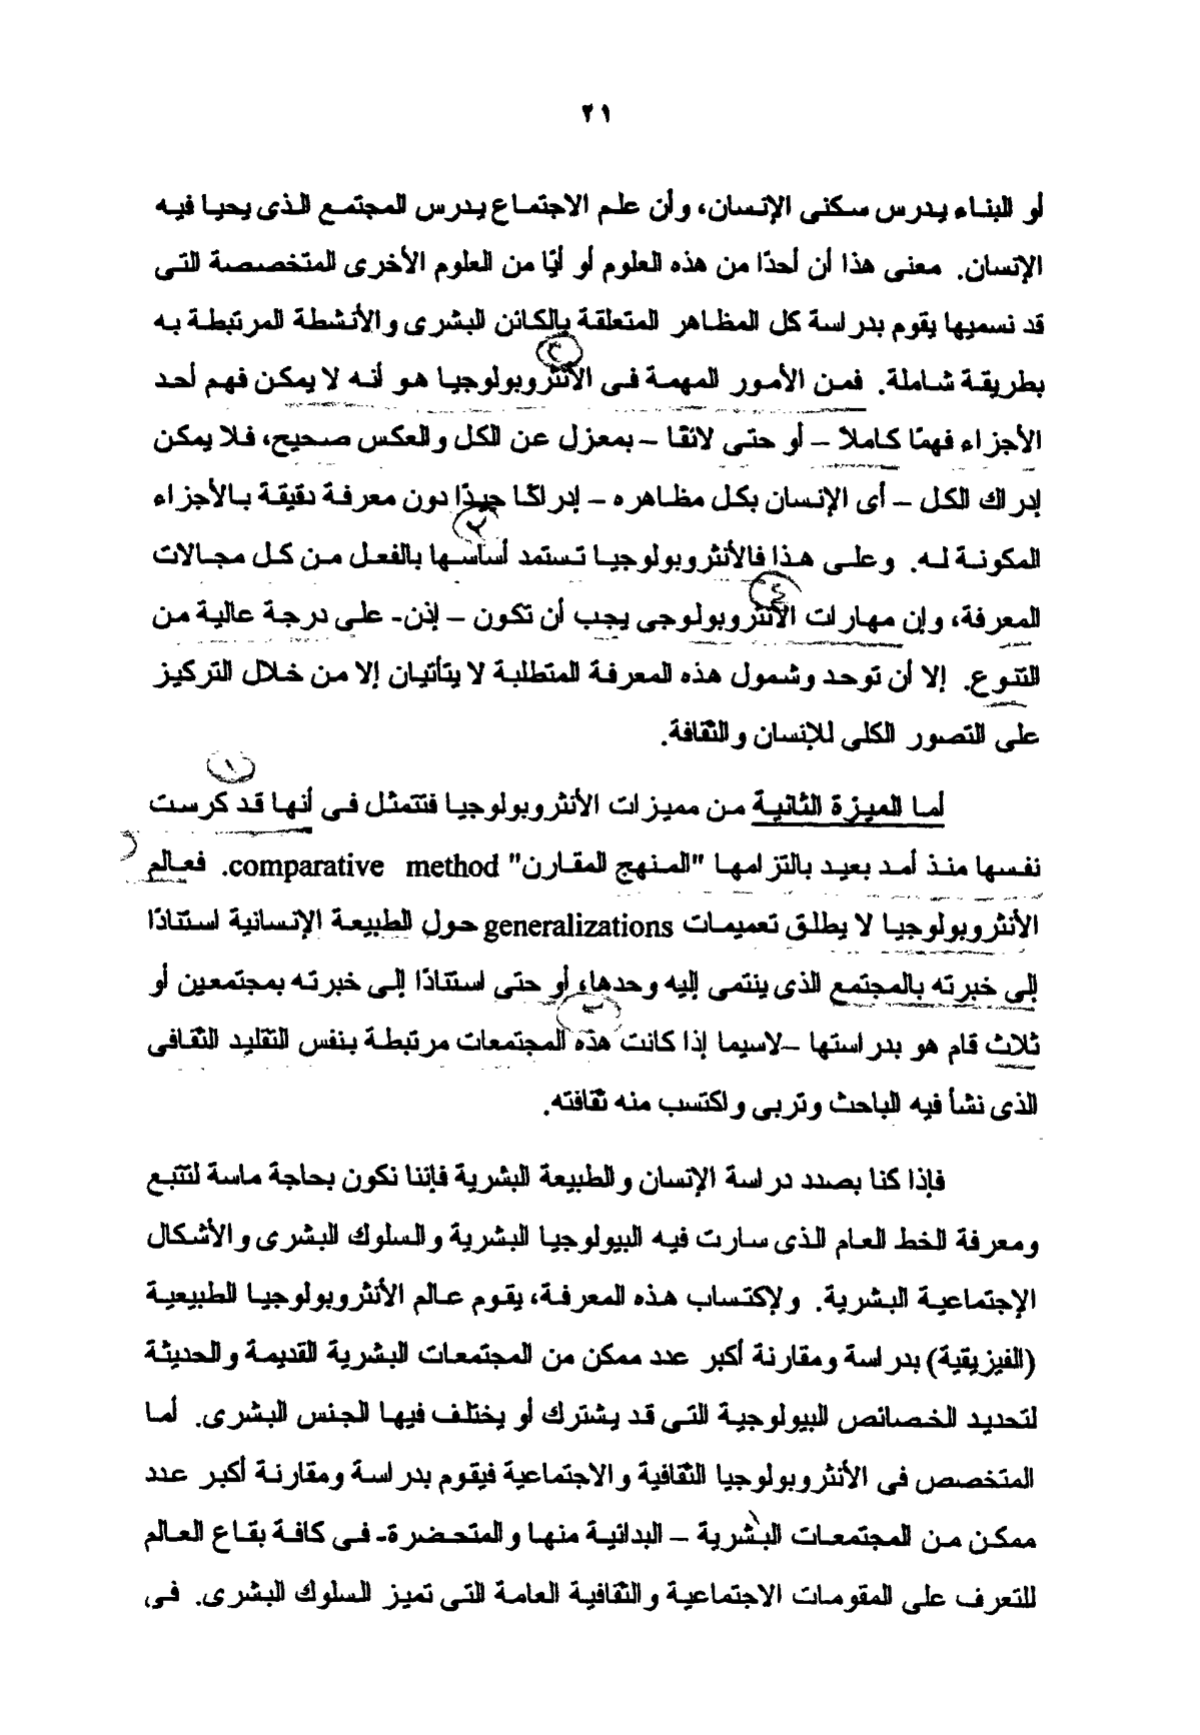 ٢١
أو البناء يدرس سكنى الإنسان، وأن علم الاجتماع يدرس المجتمع الذى يحيا فيه
الإنسان. معنى هذا أن أحدًا من هذه العلوم أو أيًا من العلوم الأخرى المتخصصة التى
قد نسميها يقوم بدراسة كل المظاهر المتعلقة بالكائن البشرى والأنشطة المرتبطة به
٣
بطريقة شاملة. فمن الأمور المهمة فى الأنثروبولوجيا هو أنه لا يمكن فهم أحد
الأجزاء فهمًا كاملاً – أو حتى لائقًا – بمعزل عن الكل والعكس صحيح، فلا يمكن
إدراك الكل – أى الإنسان بكل مظاهره – إدراكًا جيدًا دون معرفة دقيقة بالأجزاء
المكونة له. وعلى هذا فالأنثروبولوجيا تستمد أساسها بالفعل من كل مجالات
٤
المعرفة، وإن مهارات الأنثروبولوجى يجب أن تكون – إذن- على درجة عالية من
التنوع. إلا أن توحد وشمول هذه المعرفة المتطلبة لا يتأتيان إلا من خلال التركيز
على التصور الكلى للإنسان والثقافة.
١
أما الميزة الثانية من مميزات الأنثروبولوجيا فتتمثل فى أنها قد كرست
نفسها منذ أمد بعيد بالتزامها "المنهج المقارن" comparative method. فعالم
الأنثروبولوجيا لا يطلق تعميمات generalizations حول الطبيعة الإنسانية استنادًا
إلى خبرته بالمجتمع الذى ينتمى إليه وحدها، أو حتى استنادًا إلى خبرته بمجتمعين أو
ثلاث قام هو بدراستها –لاسيما إذا كانت هذه المجتمعات مرتبطة بنفس التقليد الثقافى
الذى نشأ فيه الباحث وتربى واكتسب منه ثقافته.
فإذا كنا بصدد دراسة الإنسان والطبيعة البشرية فإننا نكون بحاجة ماسة لتتبع
ومعرفة الخط العام الذى سارت فيه البيولوجيا البشرية والسلوك البشرى والأشكال
الإجتماعية البشرية. ولإكتساب هذه المعرفة، يقوم عالم الأنثروبولوجيا الطبيعية
(الفيزيقية) بدراسة ومقارنة أكبر عدد ممكن من المجتمعات البشرية القديمة والحديثة
لتحديد الخصائص البيولوجية التى قد يشترك أو يختلف فيها الجنس البشرى. أما
المتخصص فى الأنثروبولوجيا الثقافية والاجتماعية فيقوم بدراسة ومقارنة أكبر عدد
ممكن من المجتمعات البشرية – البدائية منها والمتحضرة- فى كافة بقاع العالم
للتعرف على المقومات الاجتماعية والثقافية العامة التى تميز السلوك البشرى. فى